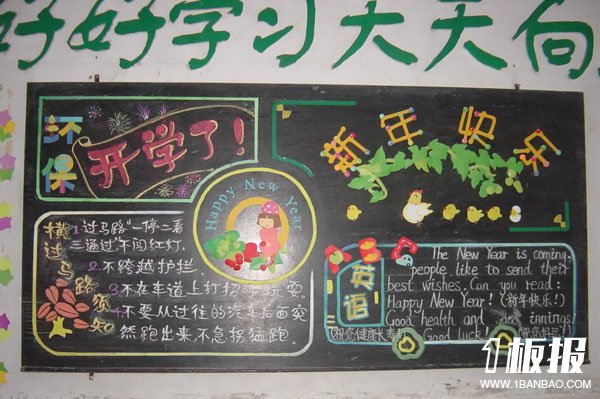 好好学习天天向
环保
开学了!
新年快乐
Happy New Year
横过马路须知
1.过马路"一停二看
三通过"不闯红灯.
2.不跨越护拦.
3.不在车道上打招
4.不要从过往的汽车后面突
然跑出来.不急拐猛跑.
英语
The New Year is coming.
people like to send their
best wishes. Can you read:
Happy New Year! (新年快乐!)
Good health and good innings!
(祝您健康长寿) Good luck! (祝你好运!)
板报
WWW.1BANBAO.COM